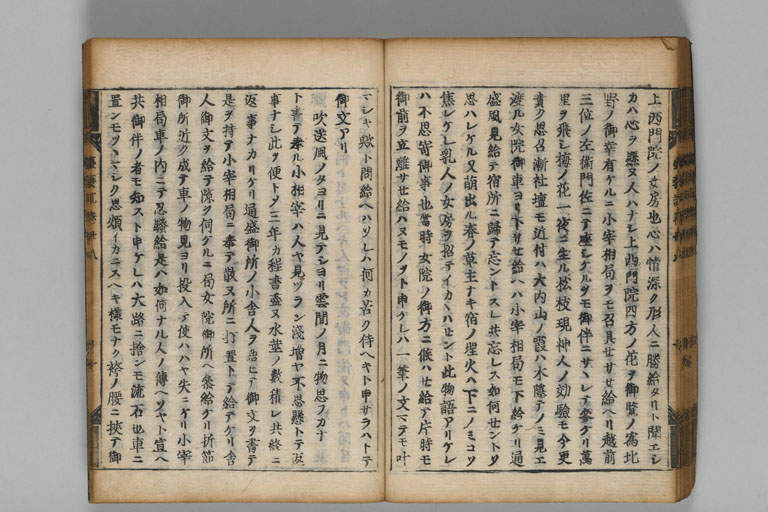 上西門院ノ女房也心ハ情深ク形人ニ勝給タリト聞エシ
カハ心ヲ懸ヌ人ハナシ上西門院四方ノ花ヲ御覧ノ為北
野ノ御幸有ケルニ小宰相局ヲモ召具せサせ給ヘリ越前
三位ノ左衛門佐ニテ座シケルヲモ御伴ニサハレテ参ケリ萬
里ヲ飛シ梅ノ花一夜ニ生ル松枝現神人ノ効驗モ今更
貴ク思召漸社壇モ近付ハ大内山ノ霞ハ木隠テノミ見エ
渡ル女院御車ヨリ下リサせ給ヘハ小宰相局モ下給ケリ通
盛風見給テ宿所ニ歸テ忘ントスレ共忘レス如何せントソ
思ハレケル又萌出ル春ノ草主ナキ宿ノ埋火ハ下ニノミコソ
焦レケレ乳人ノ女房ヲ招テイカヽハせント此物語アリケレ
ハ不思寄御事也當時女院ノ御方ニ候ハせ給テ片時モ
御前ヲ立離サせ給ハヌモノヲト申ケレハ一筆ノ文マテモ叶
マシキ歟ト問給ヘハソレハ何カ苦ク侍ヘキト申サラハトテ
御文アリ
吹送風ノタヨリニ見テシヨリ雲間ノ月ニ物思フカナ
ト書テ奉ル小相宰ハ人ヤ見ツラン淺増ヤ不思懸トテ返
事ナシ此ヲ便トソ三年カ程書盡ヌ水莖ノ數積レ共終ニ
返事ナカリケリ通盛御所ノ小舎人ヲ召ニテ御文ヲ書テ
是ヲ持テ小宰相局ニ奉テ散又所ニ打置トテ給テケリ舎
人御文ヲ給テ隙ヲ伺ケルニ局女院御所ヘ参給ケリ折節
御所近ク成テ車ノ物見ヨリ投入テ使ハハヤ失ニケリ小宰
相局車ノ内ニテ思騒給是ハ如何ナル人ノ傳ヘツルヤト宣ヘ
共御伴ノ者モ知スト申ケレハ大路ニ捨ンモ流石也車ニ
置ンモツヽマシク思煩イカニスヘキ様モナク袴ノ腰ニ挾テ御